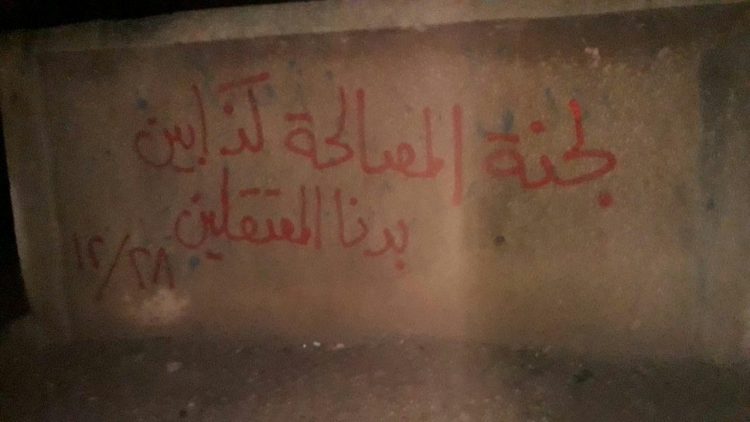 لجنة المصالحة كذابين
بدنا المعتقلين
١٢/٢٨